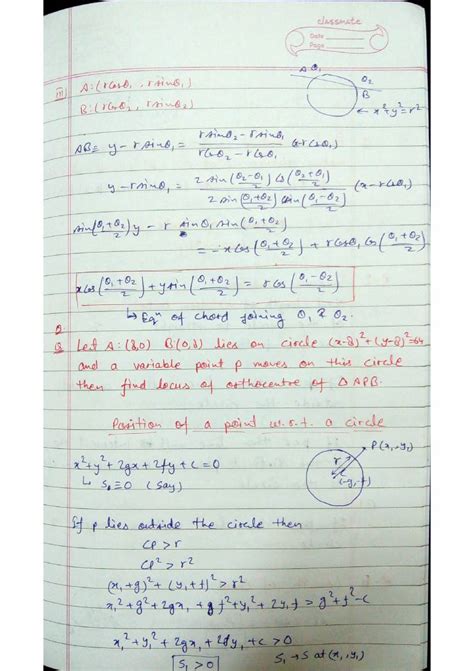 classmate
Date
Page
(iii) A : (r cosθ₁ , r sinθ₁)
B : (r cosθ₂ , r sinθ₂)
A θ₁
θ₂
B
x²+y²=r²
AB ≡ y - r sinθ₁ = (r sinθ₂ - r sinθ₁)/(r cosθ₂ - r cosθ₁) (x - r cosθ₁)
y - r sinθ₁ = 2 sin((θ₂-θ₁)/2) cos((θ₂+θ₁)/2) / 2 sin((θ₁+θ₂)/2) sin((θ₁-θ₂)/2) (x - r cosθ₁)
sin((θ₁+θ₂)/2) y - r sinθ₁ sin((θ₁+θ₂)/2)
= -x cos((θ₁+θ₂)/2) + r cosθ₁ cos((θ₁+θ₂)/2)
x cos((θ₁+θ₂)/2) + y sin((θ₁+θ₂)/2) = r cos((θ₁-θ₂)/2)
↳ Eqⁿ of chord joining θ₁ & θ₂.
Q Let A : (8,0) B(0,8) lies on circle (x-8)²+(y-8)²=64
and a variable point P moves on this circle
then find locus of orthocentre of Δ APB.
Position of a point w.r.t. a circle
P(x₁,y₁)
r
(-g,-f)
x²+y²+2gx+2fy+c=0
↳ S₁≡0 (say)
If P lies outside the circle then
CP > r
CP² > r²
(x₁+g)² + (y₁+f)² > r²
x₁² + g² + 2gx₁ + f² + y₁² + 2y₁f > g²+f²-c
x₁² + y₁² + 2gx₁ + 2fy₁ + c > 0
S₁ > 0
S₁ → S at (x₁,y₁)